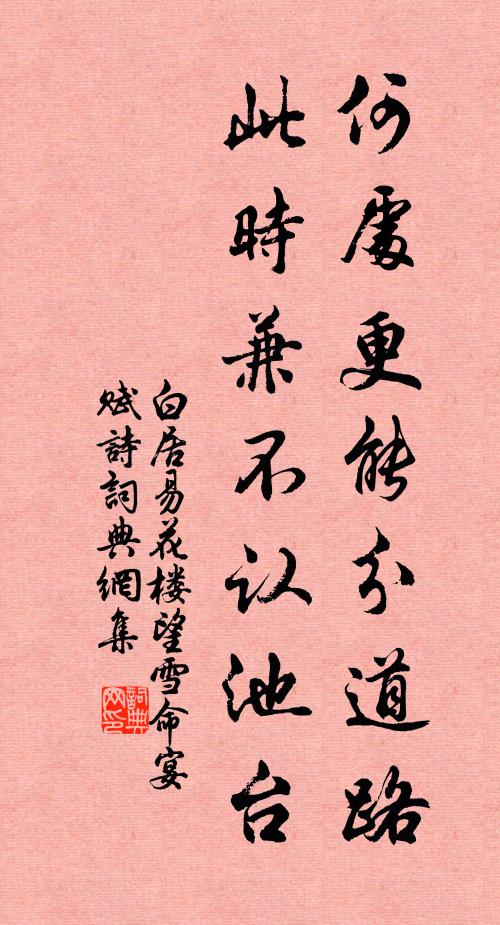 何處更能分道路
此時兼不认池台
白居易花楼望雪命宴
赋詩詞典網集
詞典
网印